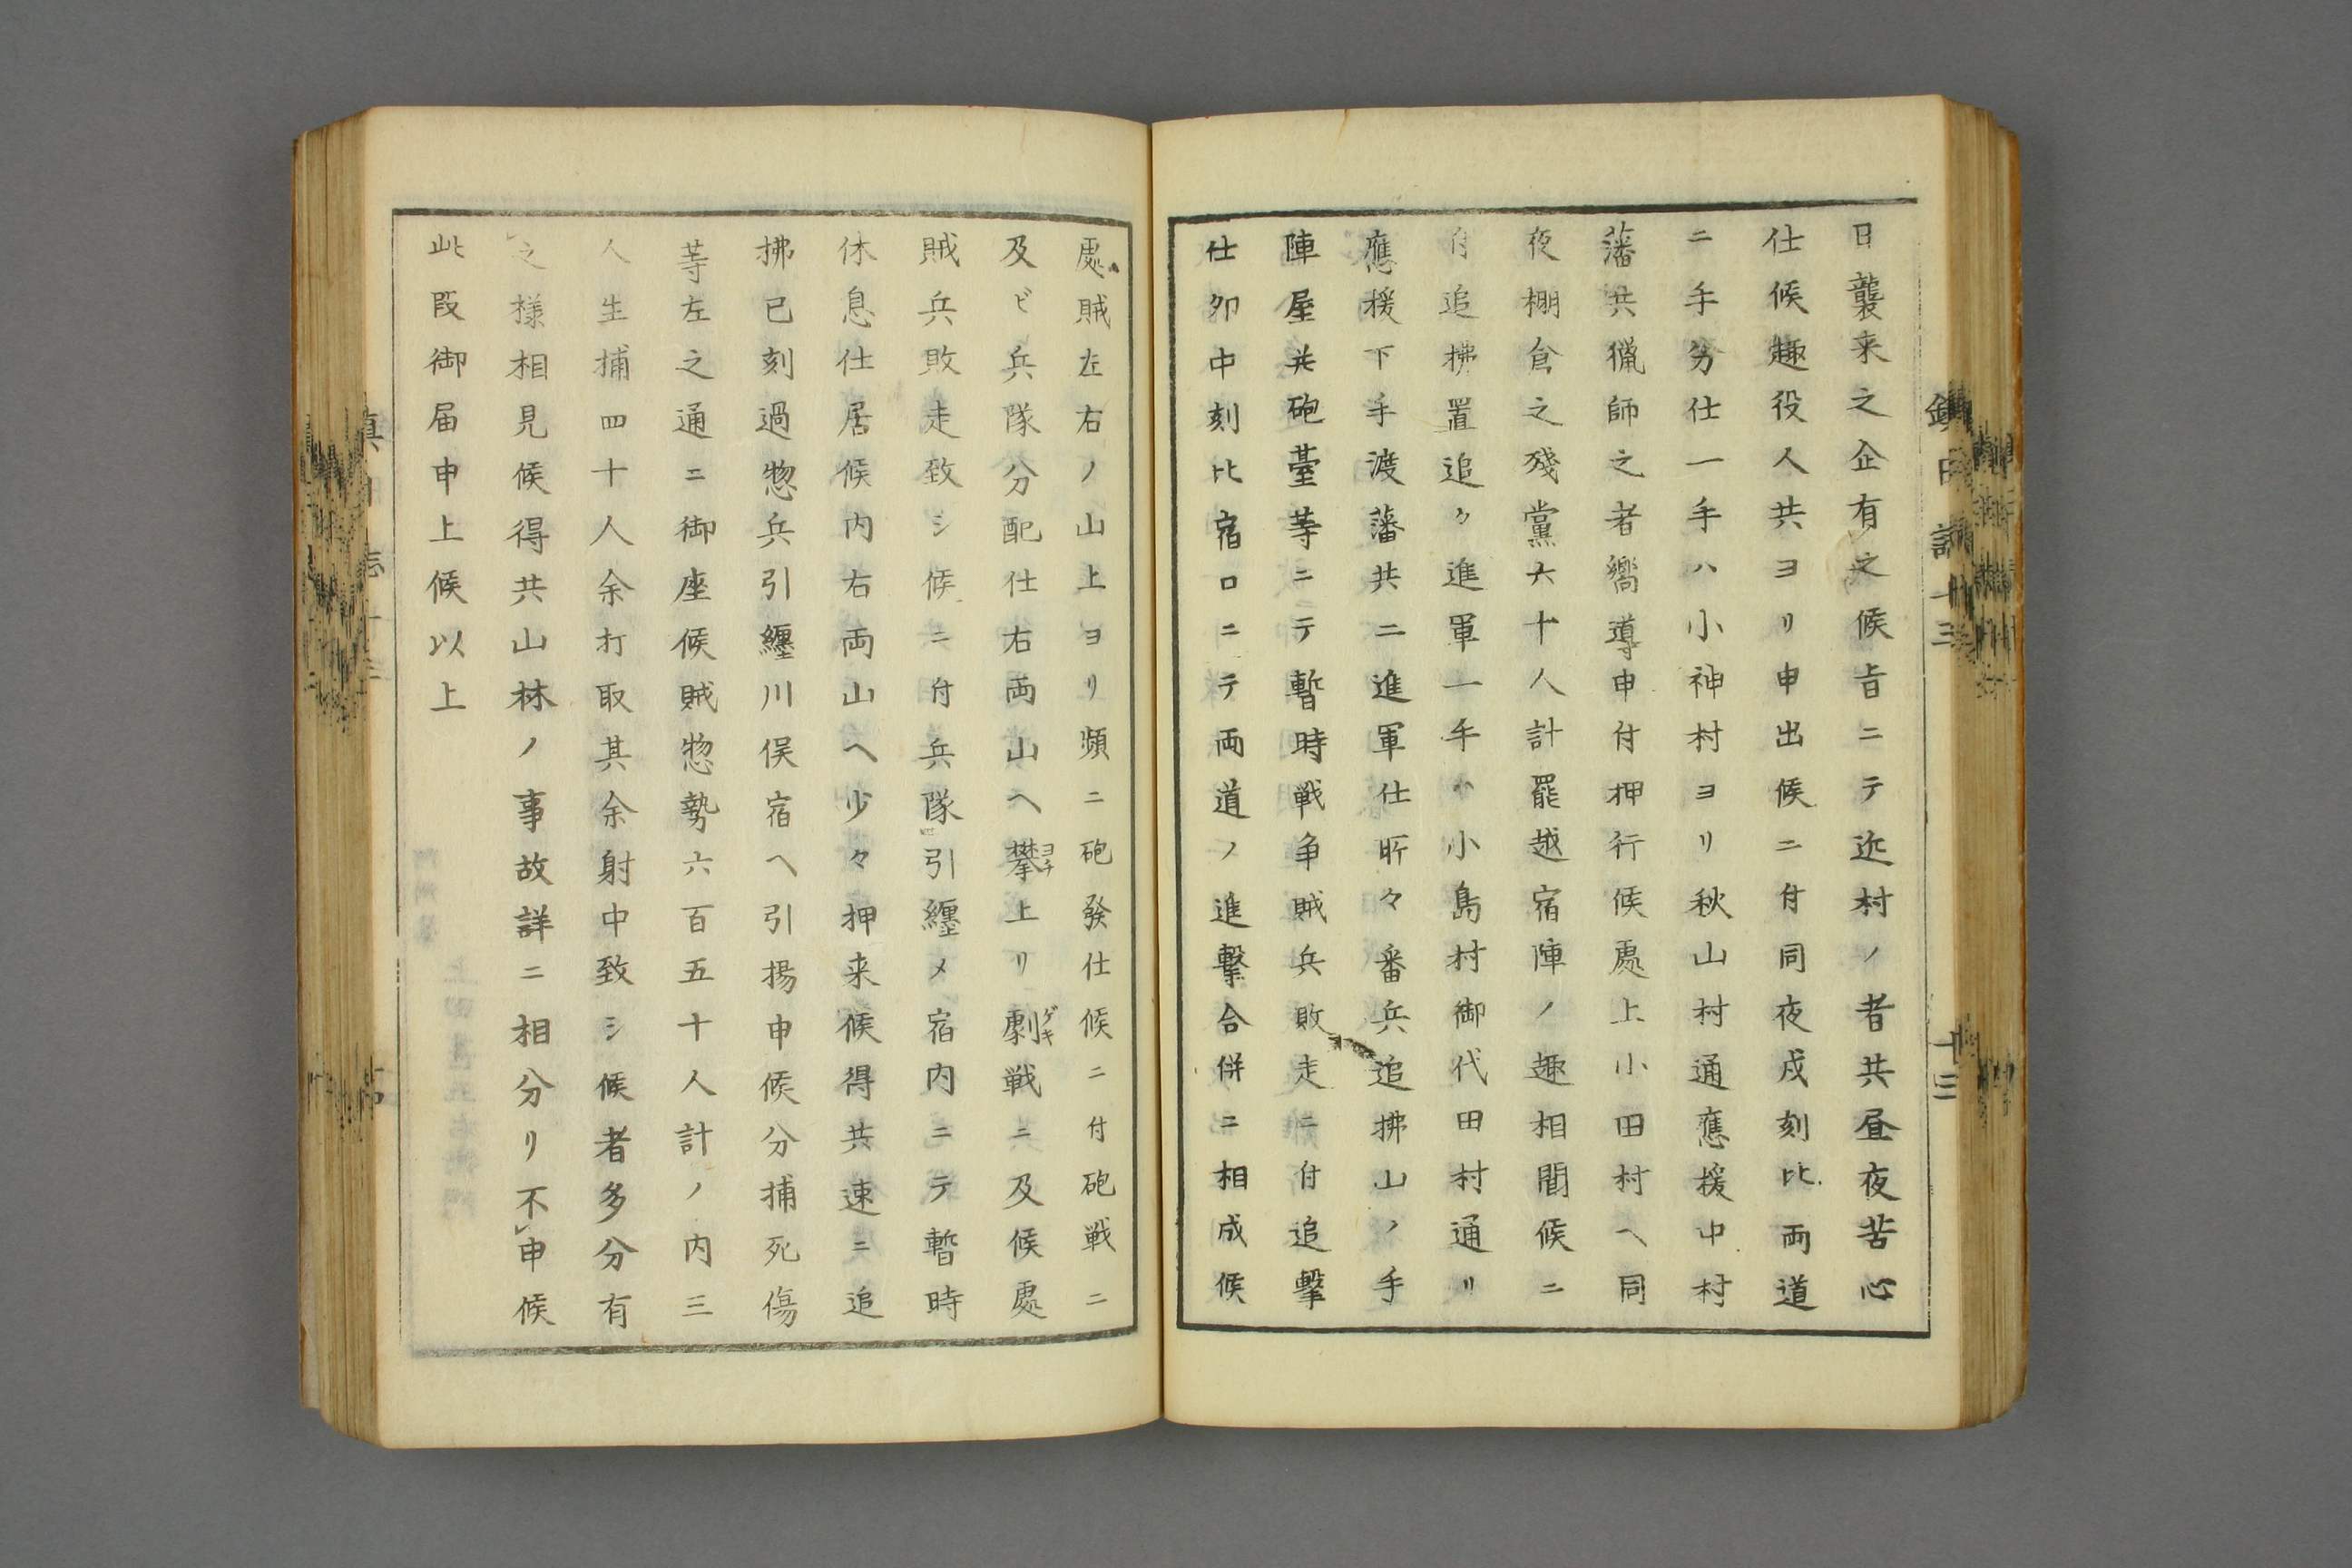 日襲来之企有之候旨ニテ近村ノ者共昼夜苦心
仕候趣役人共ヨリ申出候ニ付同夜戌刻比両道
ニ手分仕一手ハ小神村ヨリ秋山村通應援中村
藩共猟師之者嚮導申付押行候處上小田村ヘ同
夜棚倉之殘黨六十人計罷越宿陣ノ趣相聞候ニ
付追拂置追々進軍一手ハ小島村御代田村通リ
應援下手渡藩共ニ進軍仕所々番兵追拂山ノ手
陣屋共砲臺等ニテ暫時戦争賊兵敗走ニ付追撃
仕卯中刻比宿口ニテ両道ノ進撃合併ニ相成候
處賊左右ノ山上ヨリ頻ニ砲發仕候ニ付砲戦ニ
及ビ兵隊分配仕右両山ヘ攀ヨヂ上リ劇ゲキ戦ニ及候處
賊兵敗走致シ候ニ付兵隊引纒メ宿内ニテ暫時
休息仕居候内右両山ヘ少々押来候得共速ニ追
拂已刻過惣兵引纒川俣宿ヘ引揚申候分捕死傷
等左之通ニ御座候賊惣勢六百五十人計ノ内三
人生捕四十人余打取其余射中致シ候者多分有
之様相見候得共山林ノ事故詳ニ相分リ不申候
此段御届申上候以上